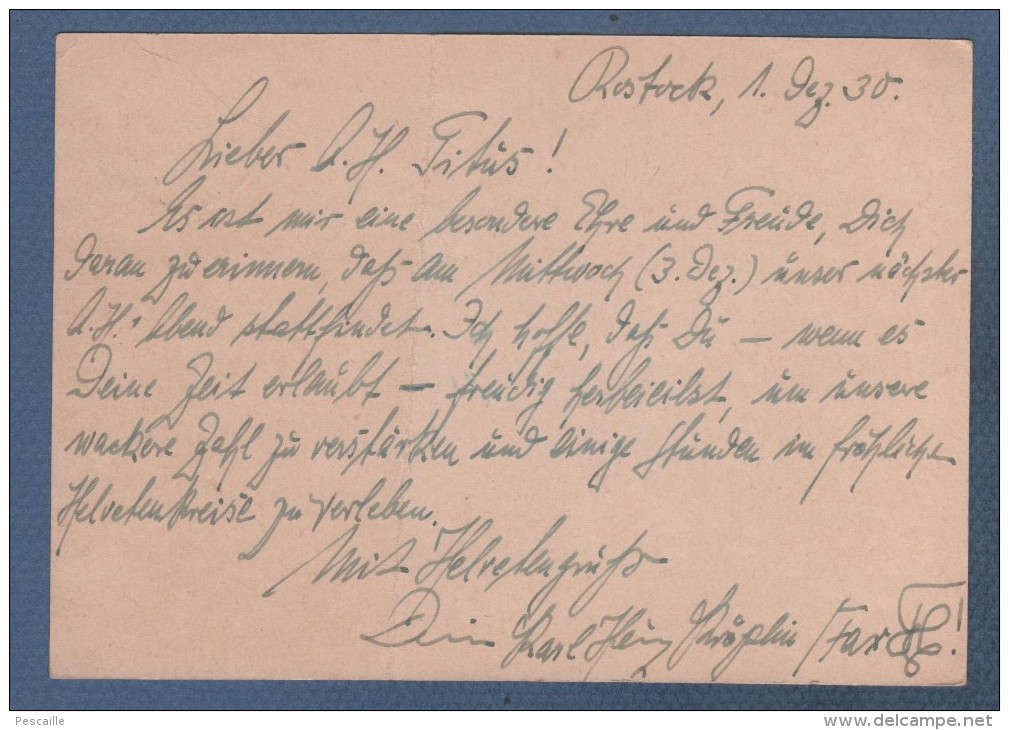 Rostock, 1. Dez. 30.
Lieber A. H. Titus!
Es ist mir eine besondere Ehre und Freude, Dich
daran zu erinnern, daß am Mittwoch (3. Dez.) unser nächster
A.H.-Abend stattfindet. Ich hoffe, daß Du — wenn es
Deine Zeit erlaubt — freudig herbeieilst, um unsere
wackere Zahl zu verstärken und einige Stunden im fröhlichen
Helvetenkreise zu verleben.
Mit Helvetengruß
Dein Karl Heinz Kröplin
Pescaille
www.delcampe.net